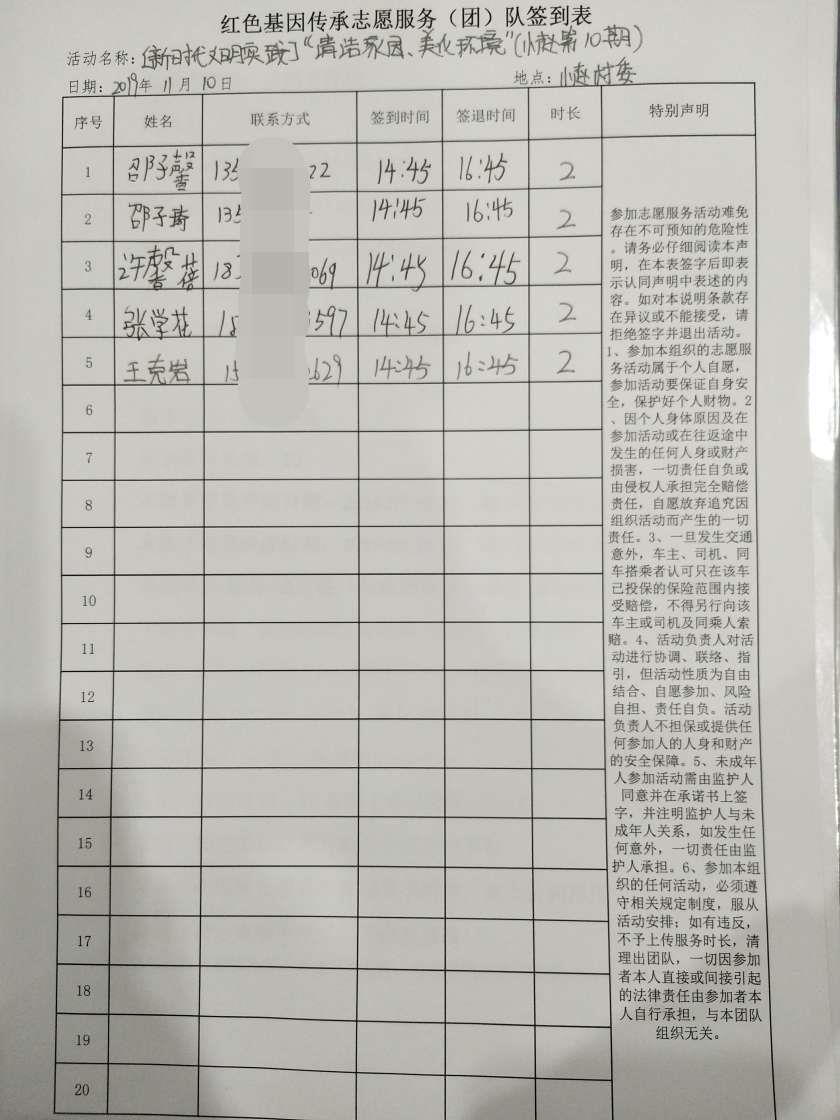 红色基因传承志愿服务（团）队签到表
活动名称：[新时代文明实践]“清洁家园、美化环境”(小赵第10期)
日期：2019年 11月 10日 地点：小赵村委
序号 姓名 联系方式 签到时间 签退时间 时长 特别声明
1 邵子馨 135 22 14:45 16:45 2
2 邵子琦 135 14:45 16:45 2
3 许馨蓓 183 069 14:45 16:45 2
4 张学花 18 597 14:45 16:45 2
5 王克岩 15 629 14:45 16:45 2
6
7
8
9
10
11
12
13
14
15
16
17
18
19
20
参加志愿服务活动难免
存在不可预知的危险性
。请务必仔细阅读本声
明，在本表签字后即表
示认同声明中表述的内
容。如对本说明条款存
在异议或不能接受，请
拒绝签字并退出活动。
1、参加本组织的志愿服
务活动属于个人自愿，
参加活动要保证自身安
全，保护好个人财物。2
、因个人身体原因及在
参加活动或在往返途中
发生的任何人身或财产
损害，一切责任自负或
由侵权人承担完全赔偿
责任，自愿放弃追究因
组织活动而产生的一切
责任。3、一旦发生交通
意外，车主、司机、同
车搭乘者认可只在该车
已投保的保险范围内接
受赔偿，不得另行向该
车主或司机及同乘人索
赔。4、活动负责人对活
动进行协调、联络、指
引，但活动性质为自由
结合、自愿参加、风险
自担、责任自负。活动
负责人不担保或提供任
何参加人的人身和财产
的安全保障。5、未成年
人参加活动需由监护人
同意并在承诺书上签
字，并注明监护人与未
成年人关系，如发生任
何意外，一切责任由监
护人承担。6、参加本组
织的任何活动，必须遵
守相关规定制度，服从
活动安排；如有违反，
不予上传服务时长，清
理出团队，一切因参加
者本人直接或间接引起
的法律责任由参加者本
人自行承担，与本团队
组织无关。